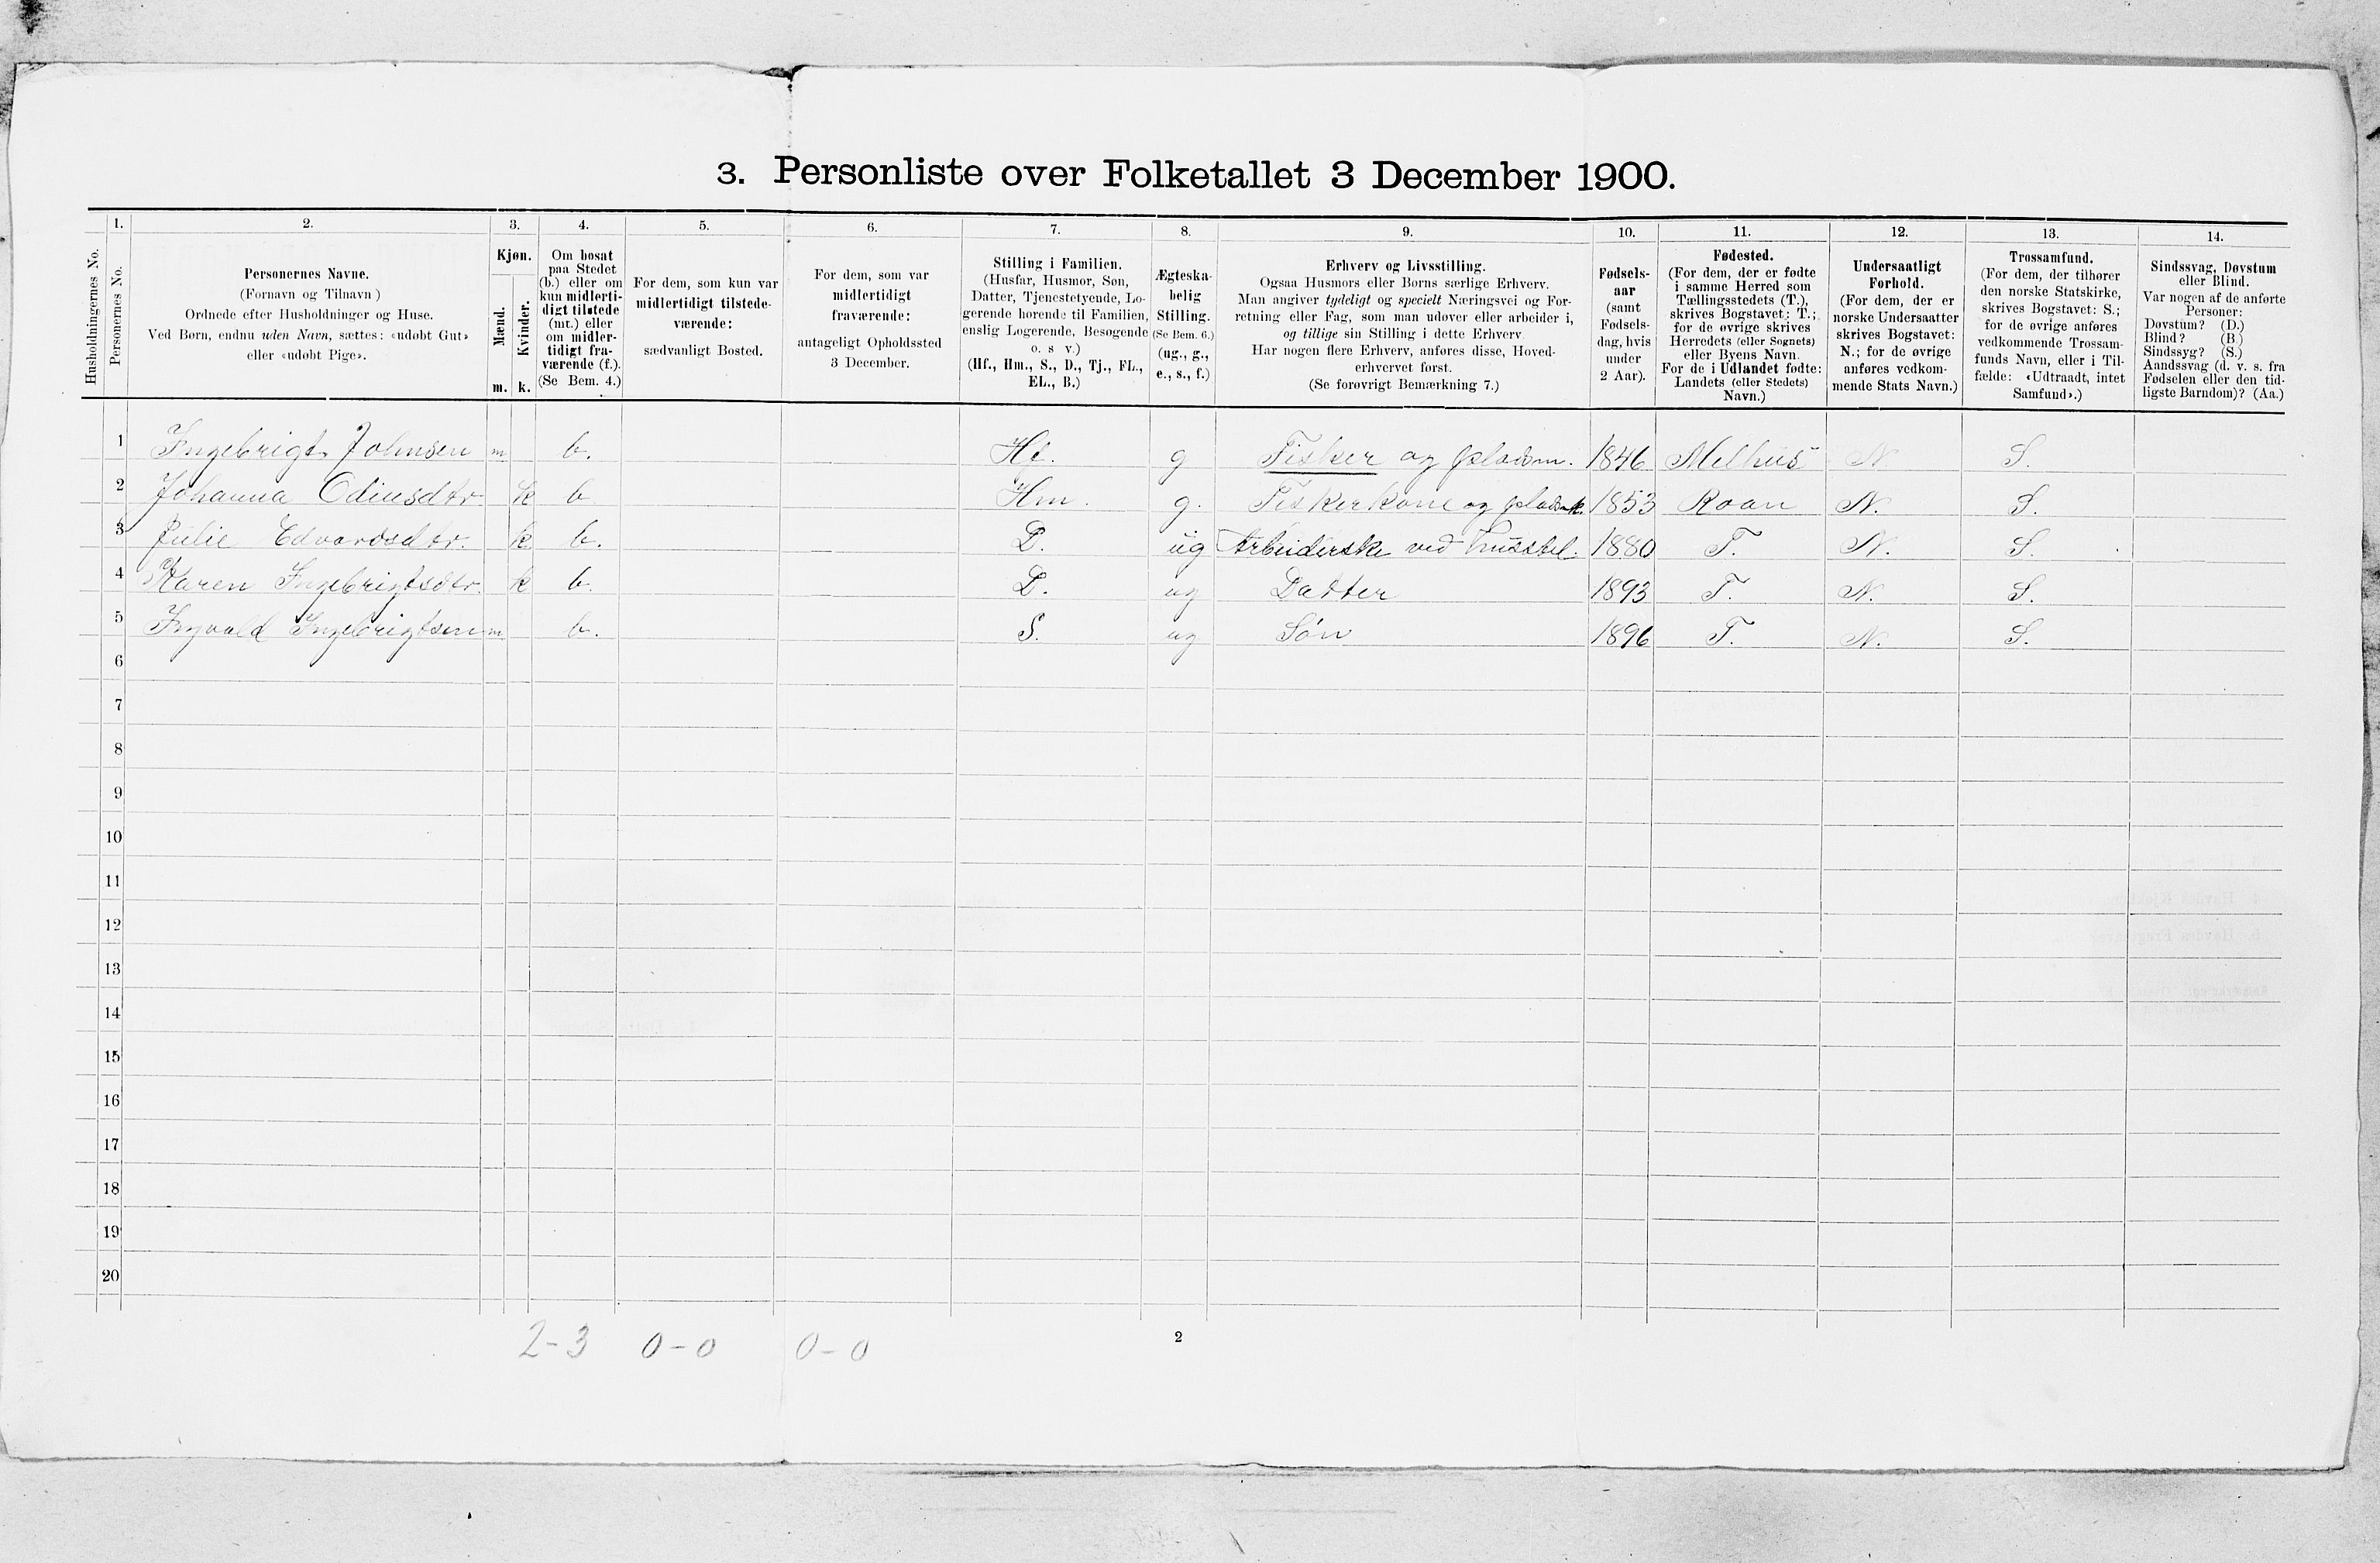 3. Personliste over Folketallet 3 December 1900.
1. 2. 3. 4. 5. 6. 7. 8. 9. 10. 11. 12. 13. 14.
Husholdningernes No.
Personernes No.
Personernes Navne.
(Fornavn og Tilnavn )
Ordnede efter Husholdninger og Huse.
Ved Børn, endnu uden Navn, sættes: «udøbt Gut»
eller «udøbt Pige».
Kjøn.
Mænd.
Kvinder.
m. k.
Om bosat
paa Stedet
(b.) eller om
kun midlerti-
digt tilstede
(mt.) eller
om midler-
tidigt fra-
værende (f.).
(Se Bem. 4.)
For dem, som kun var
midlertidigt tilstede-
værende:
sædvanligt Bosted.
For dem, som var
midlertidigt
fraværende:
antageligt Opholdssted
3 December.
Stilling i Familien.
(Husfar, Husmor, Søn,
Datter, Tjenestetyende, Lo-
gerende hørende til Familien,
enslig Logerende, Besøgende
o. s v.)
(Hf., Hm., S., D., Tj., FL.,
EL., B.)
Ægteska-
belig
Stilling.
(Se Bem. 6.)
(ug., g.,
e., s., f.)
Erhverv og Livsstilling.
Ogsaa Husmors eller Børns særlige Erhverv.
Man angiver tydeligt og specielt Næringsvei og For-
retning eller Fag, som man udøver eller arbeider i,
og tillige sin Stilling i dette Erhverv.
Har nogen flere Erhverv, anføres disse, Hoved-
erhvervet først.
(Se forøvrigt Bemærkning 7.)
Fødsels-
aar
(samt
Fødsels-
dag, hvis
under
2 Aar).
Fødested.
(For dem, der er fødte
i samme Herred som
Tællingsstedets (T.),
skrives Bogstavet: T.;
for de øvrige skrives
Herredets (eller Sognets)
eller Byens Navn.
For de i Udlandet fødte:
Landets (eller Stedets)
Navn.)
Undersaatligt
Forhold.
(For dem, der er
norske Undersaatter
skrives Bogstavet:
N.; for de øvrige
anføres vedkom-
mende Stats Navn.)
Trossamfund.
(For dem, der tilhører
den norske Statskirke,
skrives Bogstavet: S.;
for de øvrige anføres
vedkommende Trossam-
funds Navn, eller i Til-
fælde: «Udtraadt, intet
Samfund».)
Sindssvag, Døvstum
eller Blind.
Var nogen af de anførte
Personer:
Døvstum? (D.)
Blind? (B.)
Sindssyg? (S.)
Aandssvag (d. v. s. fra
Fødselen eller den tid-
ligste Barndom)? (Aa.)
1 Ingebrigt Johnsen m b. Hf. g Fisker og pladsm. 1846 Melhus N S.
2 Johanna Odinsdtr. k b Hm. g. Fiskerkone og pladsmk. 1853 Roan N. S.
3 Julie Edvardsdtr. k b. D. ug Arbeiderske ved husstel. 1880 T. N. S.
4 Karen Ingebrigtsdtr. k b. D. ug Datter 1893 T. N. S.
5 Ingvald Ingebrigtsen m b. S. ug Søn 1896 T. N. S.
6
7
8
9
10
11
12
13
14
15
16
17
18
19
20
2-3 0-0 0-0
2